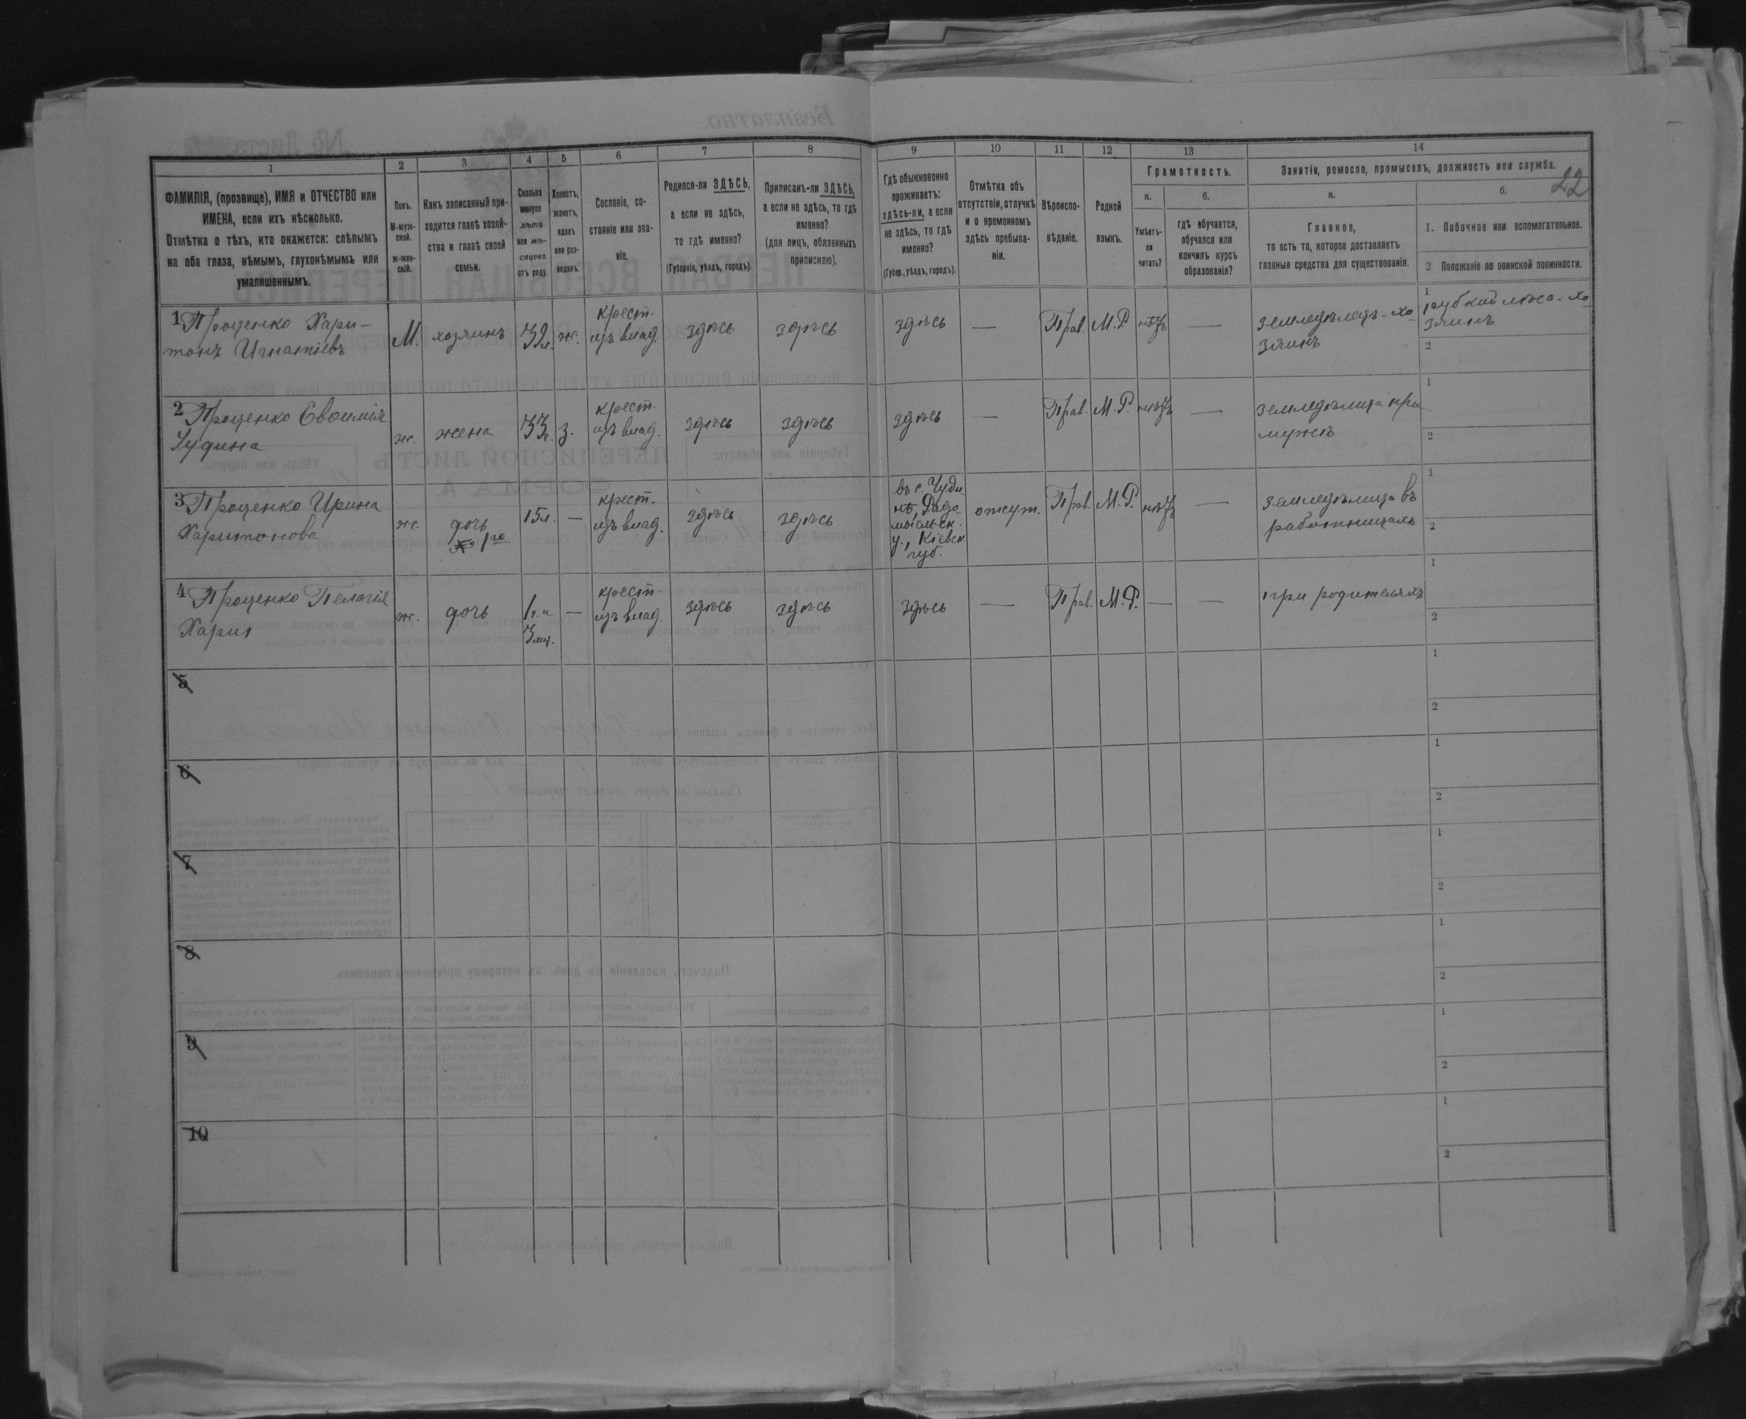 22
1 2 3 4 5 6 7 8 9 10 11 12 13 14
ФАМИЛІЯ, (прозвище), ИМЯ и ОТЧЕСТВО или
ИМЕНА, если ихъ нѣсколько.
Отмѣтка о тѣхъ, кто окажется: слѣпымъ
на оба глаза, нѣмымъ, глухонѣмымъ или
умалишеннымъ.
Полъ.
М-муж-
ской.
ж-жен-
скій.
Какъ записанный при-
ходится главѣ хозяй-
ства и главѣ своей
семьи.
Сколько
минуло
лѣтъ
или мѣ-
сяцевъ
отъ роду.
Холостъ,
женатъ,
вдовъ
или раз-
веденъ.
Сословіе, со-
стояніе или зва-
ніе.
Родился-ли ЗДѢСЬ,
а если не здѣсь,
то гдѣ именно?
(Губернія, уѣздъ, городъ).
Приписанъ-ли ЗДѢСЬ,
а если не здѣсь, то гдѣ
именно?
(для лицъ, обязанныхъ
припискою).
Гдѣ обыкновенно
проживаетъ:
здѣсь-ли, а если
не здѣсь, то гдѣ
именно?
(Губер., уѣздъ, городъ).
Отмѣтка объ
отсутствіи, отлучкѣ
и о временномъ
здѣсь пребыва-
ніи.
Вѣроиспо-
вѣданіе.
Родной
языкъ.
Грамотность.
а.
Умѣетъ-
ли
читать?
б.
гдѣ обучается,
обучался или
кончилъ курсъ
образованія?
Занятіе, ремесло, промыселъ, должность или служба.
а.
Главное,
то есть то, которое доставляетъ
главныя средства для существованія.
б.
1. Побочное или вспомогательное.
2 Положеніе по воинской повинности.
1 Проценко Хари-
тонъ Игнатіевъ
М.
хозяинъ
32 л.
ж.
крест.
изъ влад.
здѣсь
здѣсь
здѣсь
—
Прав.
М.Р.
нѣтъ
—
земледѣлецъ-хо-
зяинъ
1 рубкой лѣса-хо
зяинъ
2
2 Проценко Евфимія
ж.
жена
33 л.
з.
крест.
изъ влад.
здѣсь
здѣсь
здѣсь
—
Прав.
М.Р.
нѣтъ
—
земледѣлица при
мужѣ
1
2
3 Проценко Ирина
Харитонова
ж.
дочь
1го
15 л.
—
крест.
изъ влад.
здѣсь
здѣсь
въ с. Чуди
нѣ, Радо
мысльск.
у., Кіевск
губ.
отсут.
Прав.
М.Р.
нѣтъ
—
земледѣлица въ
работницахъ
1
2
4 Проценко Пелагія
Харит
ж.
дочь
1 г. и
3 мѣс.
—
крест.
изъ влад.
здѣсь
здѣсь
здѣсь
—
Прав.
М.Р.
—
—
при родителяхъ
1
2
5
1
2
6
1
2
7
1
2
8
1
2
9
1
2
10
1
2